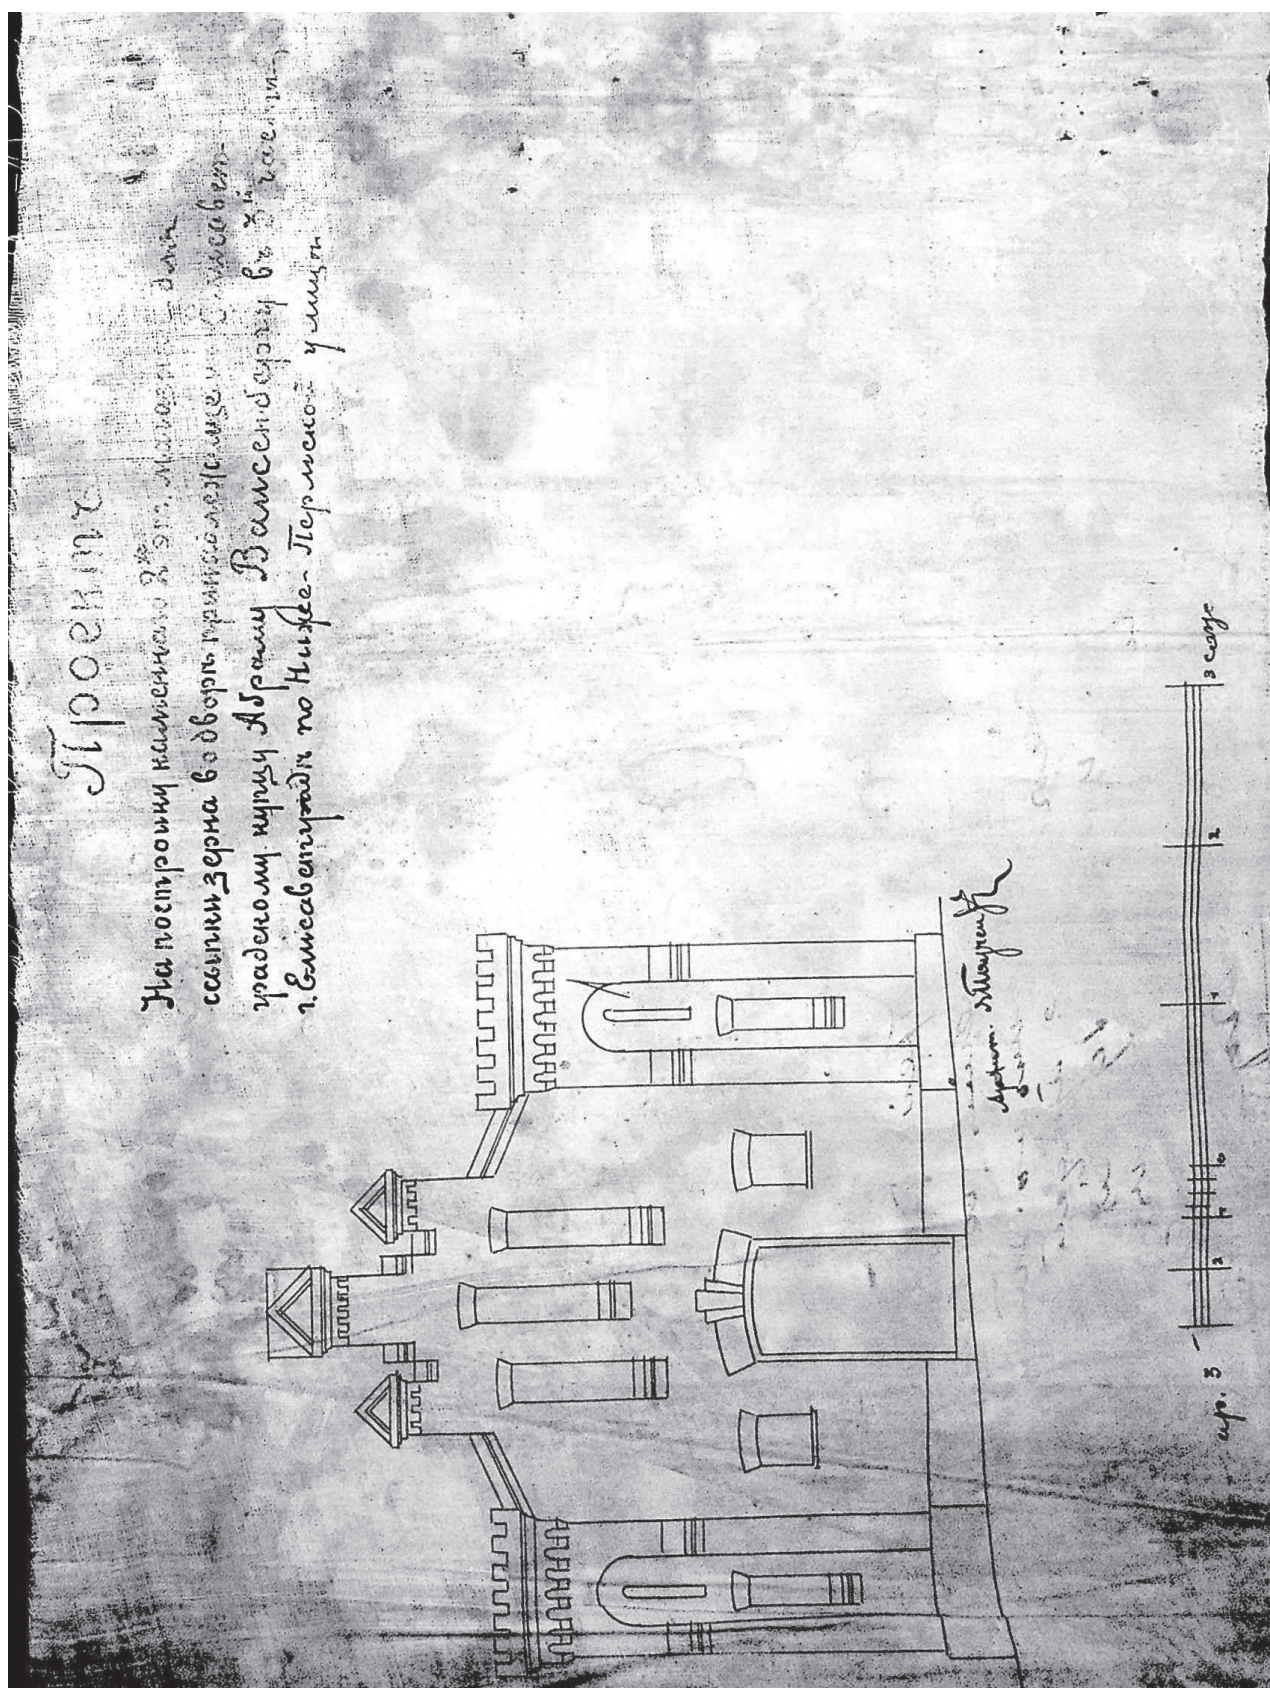 Проектъ
На постройку каменнаго 2хъ эт. магазина для
ссыпки зерна во дворѣ принадлежащемъ Елисавет-
градскому купцу Абраму Вайсенбергу въ 3й части
г. Елисаветградѣ по Ниже-Пермской улицѣ
Архит.
ар. 3 2 1 0 1 2 3 саж